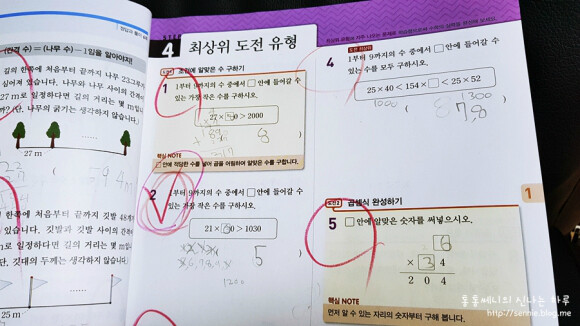 (간격 수) = (나무 수) − 1임을 알아야지!
길의 한쪽에 처음부터 끝까지 나무 23그루가
심어져 있습니다. 나무와 나무 사이의 간격이
27 m로 일정하다면 길의 거리는 몇 m입니
까? (단, 나무의 굵기는 생각하지 않습니다.)
27 m
4 최상위 도전 유형
조건에 알맞은 수 구하기
1 1부터 9까지의 수 중에서 □ 안에 들어갈 수
있는 가장 작은 수를 구하시오.
27 × □0 > 2000
8
핵심 NOTE
□ 안에 적당한 수를 넣어 곱을 어림하여 알맞은 수를 구합니다.
2 1부터 9까지의 수 중에서 □ 안에 들어갈 수
있는 가장 작은 수를 구하시오.
21 × □0 > 1030
5
한쪽에 처음부터 끝까지 깃발 48개
깃발과 깃발 사이의 간격이
m로 일정하다면 길의 거리는 몇 m입니
단, 깃대의 두께는 생각하지 않습니다.)
25 m
도전 최상위
4 1부터 9까지의 수 중에서 □ 안에 들어갈 수
있는 수를 모두 구하시오.
25 × 40 < 154 × □ < 25 × 52
1000 1300
7,8
1
도전2 곱셈식 완성하기
5 □ 안에 알맞은 숫자를 써넣으시오.
6
× 3 4
2 0 4
핵심 NOTE
먼저 알 수 있는 자리의 숫자부터 구해 봅니다.
통통쎄니의 신나는 하루
http://sennie.blog.me